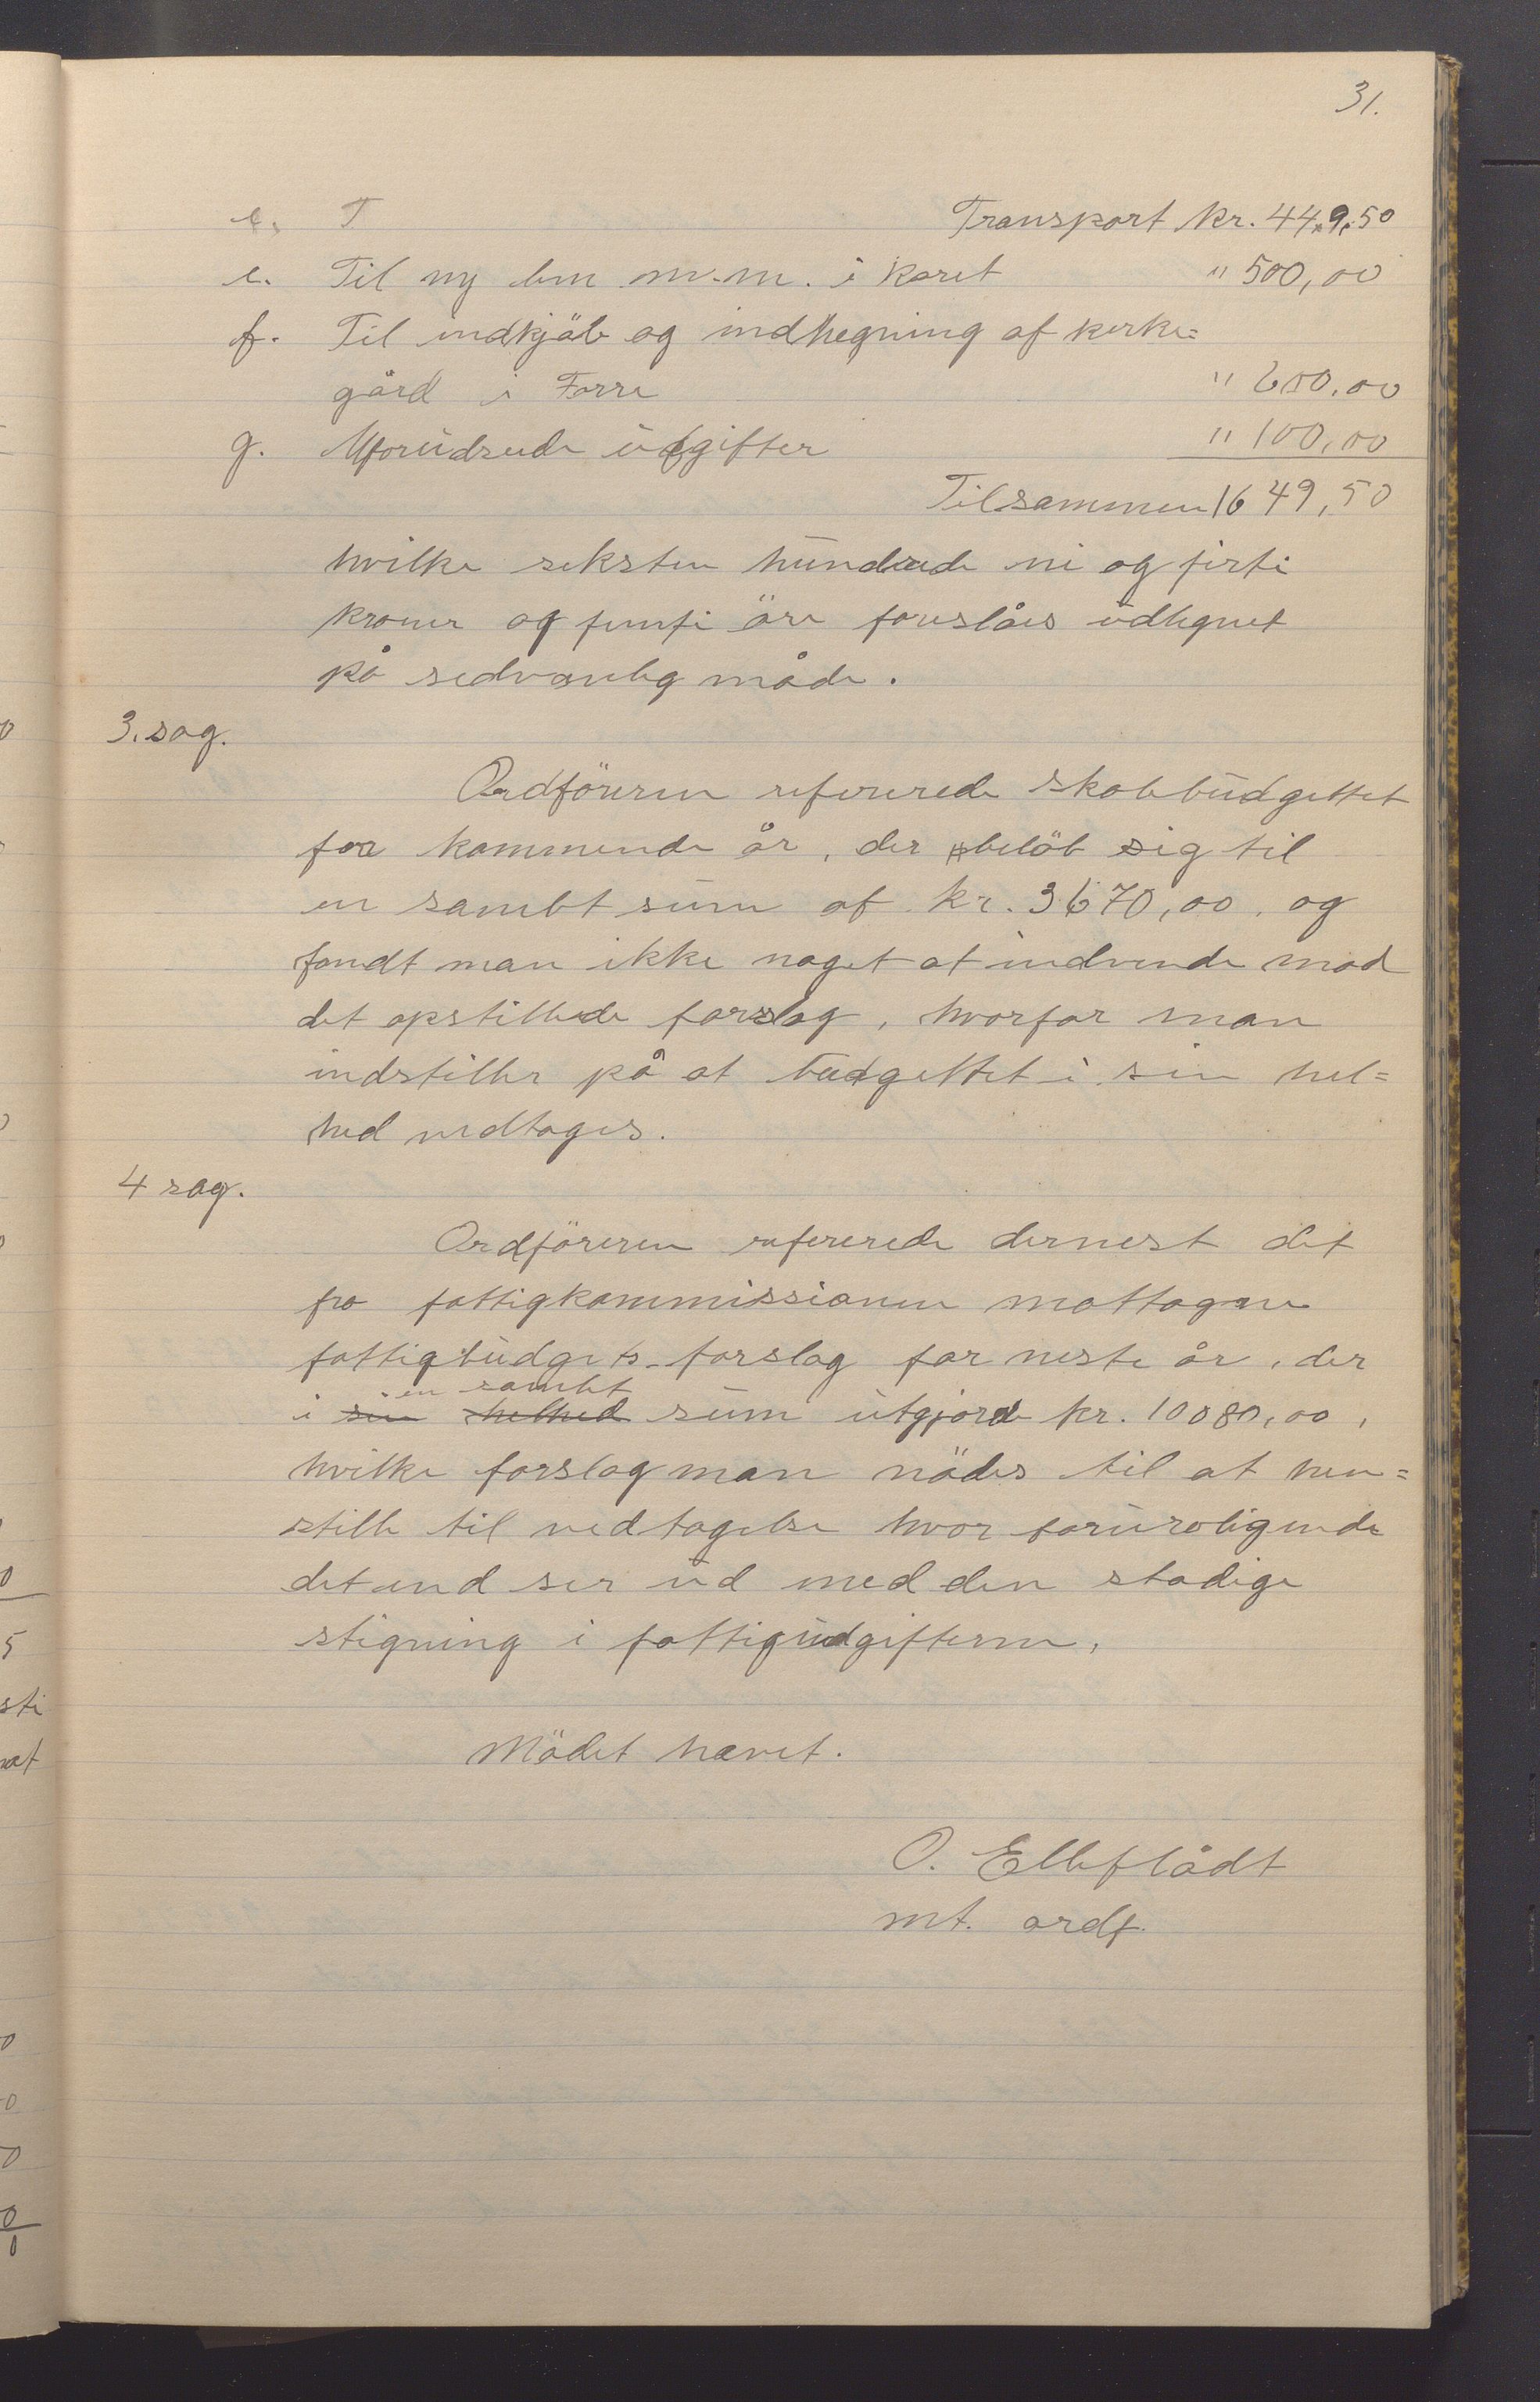 31.
e. T Transport kr. 449,50
e. Til ny bm m.m. i koret " 500,00
f. Til indkjöb og indhegning af kirke=
gård i Forre " 600,00
g. Uforudseede udgifter " 100,00
Tilsammen 1649,50
hvilke seksten hundrede ni og firti
kroner og femti öre foreslåes udlignet
på sedvanlig måde.
3. sag.
Ordföreren refererede skolebudgettet
for kommende år, der belöb sig til
en samlet sum af kr. 3670,00, og
fandt man ikke noget at indvende mod
det opstillede forslag, hvorfor man
indstiller på at budgettet i sin hel=
hed vedtages.
4 sag.
Ordföreren refererede dernest det
fra fattigkommissionen mottagne
fattigbudgets-forslag for neste år, der
en samlet
i sin helhed sum utgjorde kr. 10080,00,
hvilke forslag man nödes til at hen=
stille til vedtagelse hvor foruroligende
det end ser ud med den stadige
stigning i fattigudgifterne.
Mödet hævet.
O. Elleflådt
mt. ordf.
0
0
5
sti
at
0
0
0
0
0